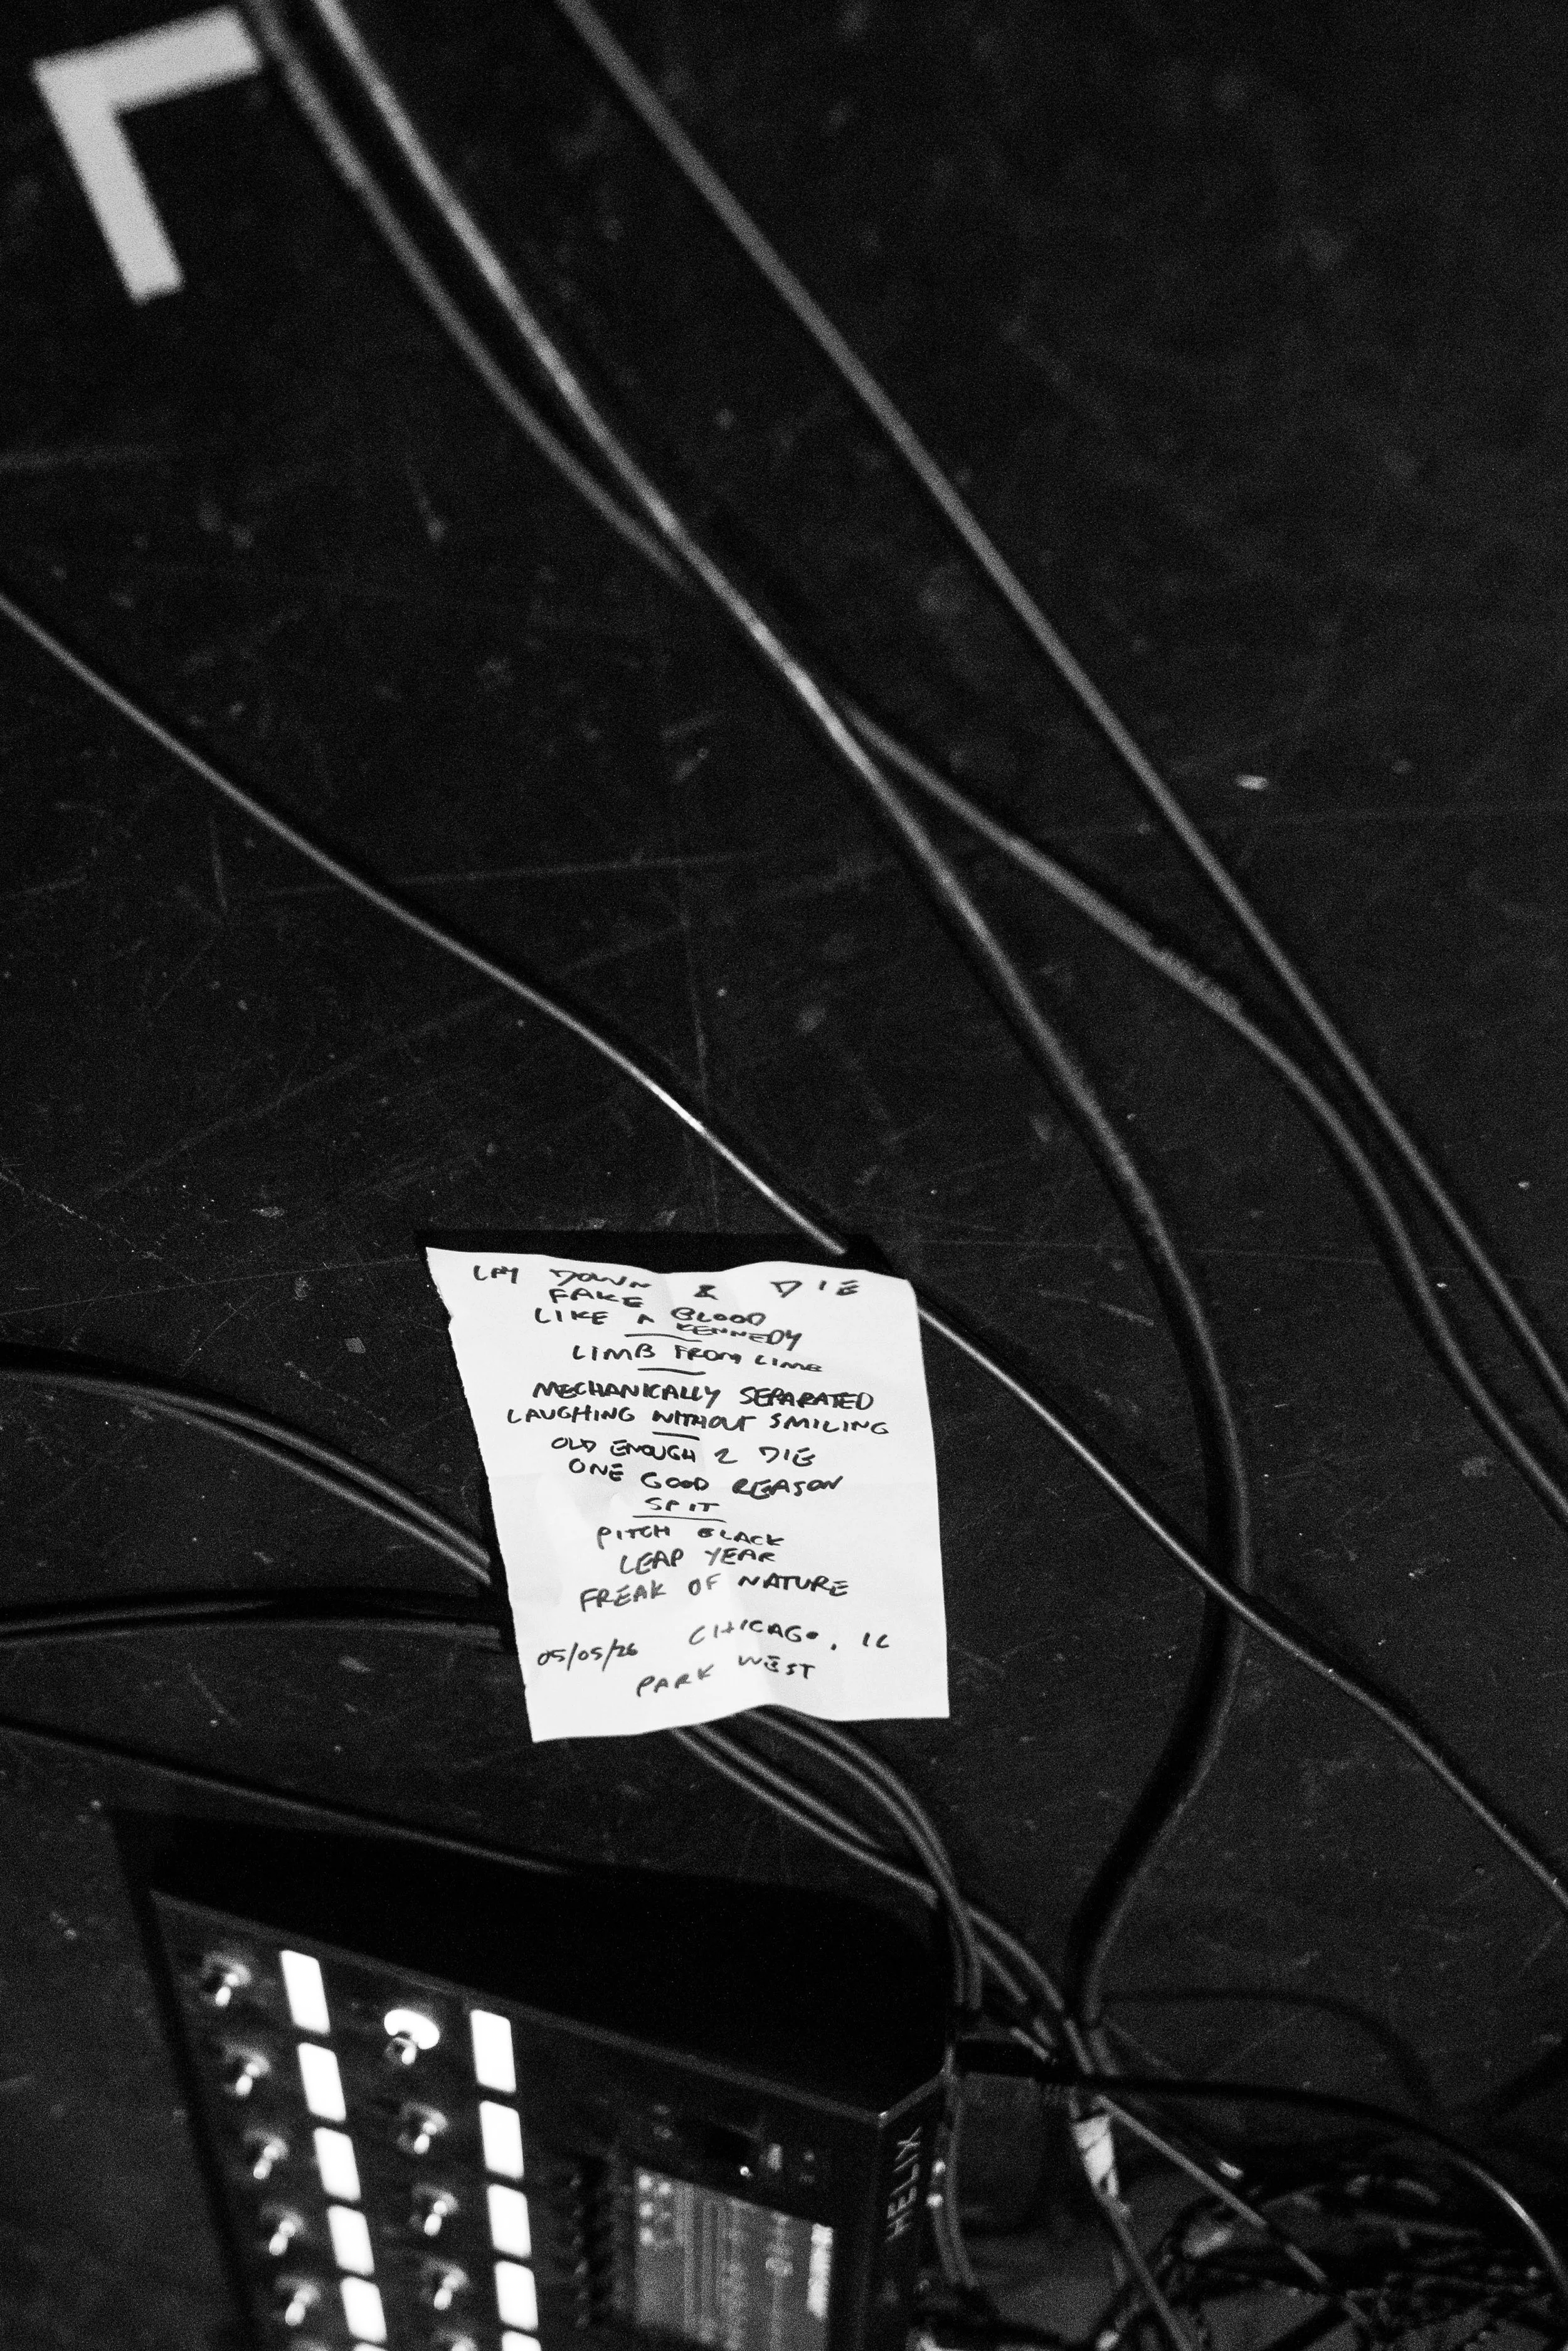 LAY DOWN & DIE
FAKE BLOOD
LIKE A KENNEDY
LIMB FROM LIMB
MECHANICALLY SEPARATED
LAUGHING WITHOUT SMILING
OLD ENOUGH 2 DIE
ONE GOOD REASON
SPIT
PITCH BLACK
LEAP YEAR
FREAK OF NATURE
05/05/26 CHICAGO, IL
PARK WEST
HELIX